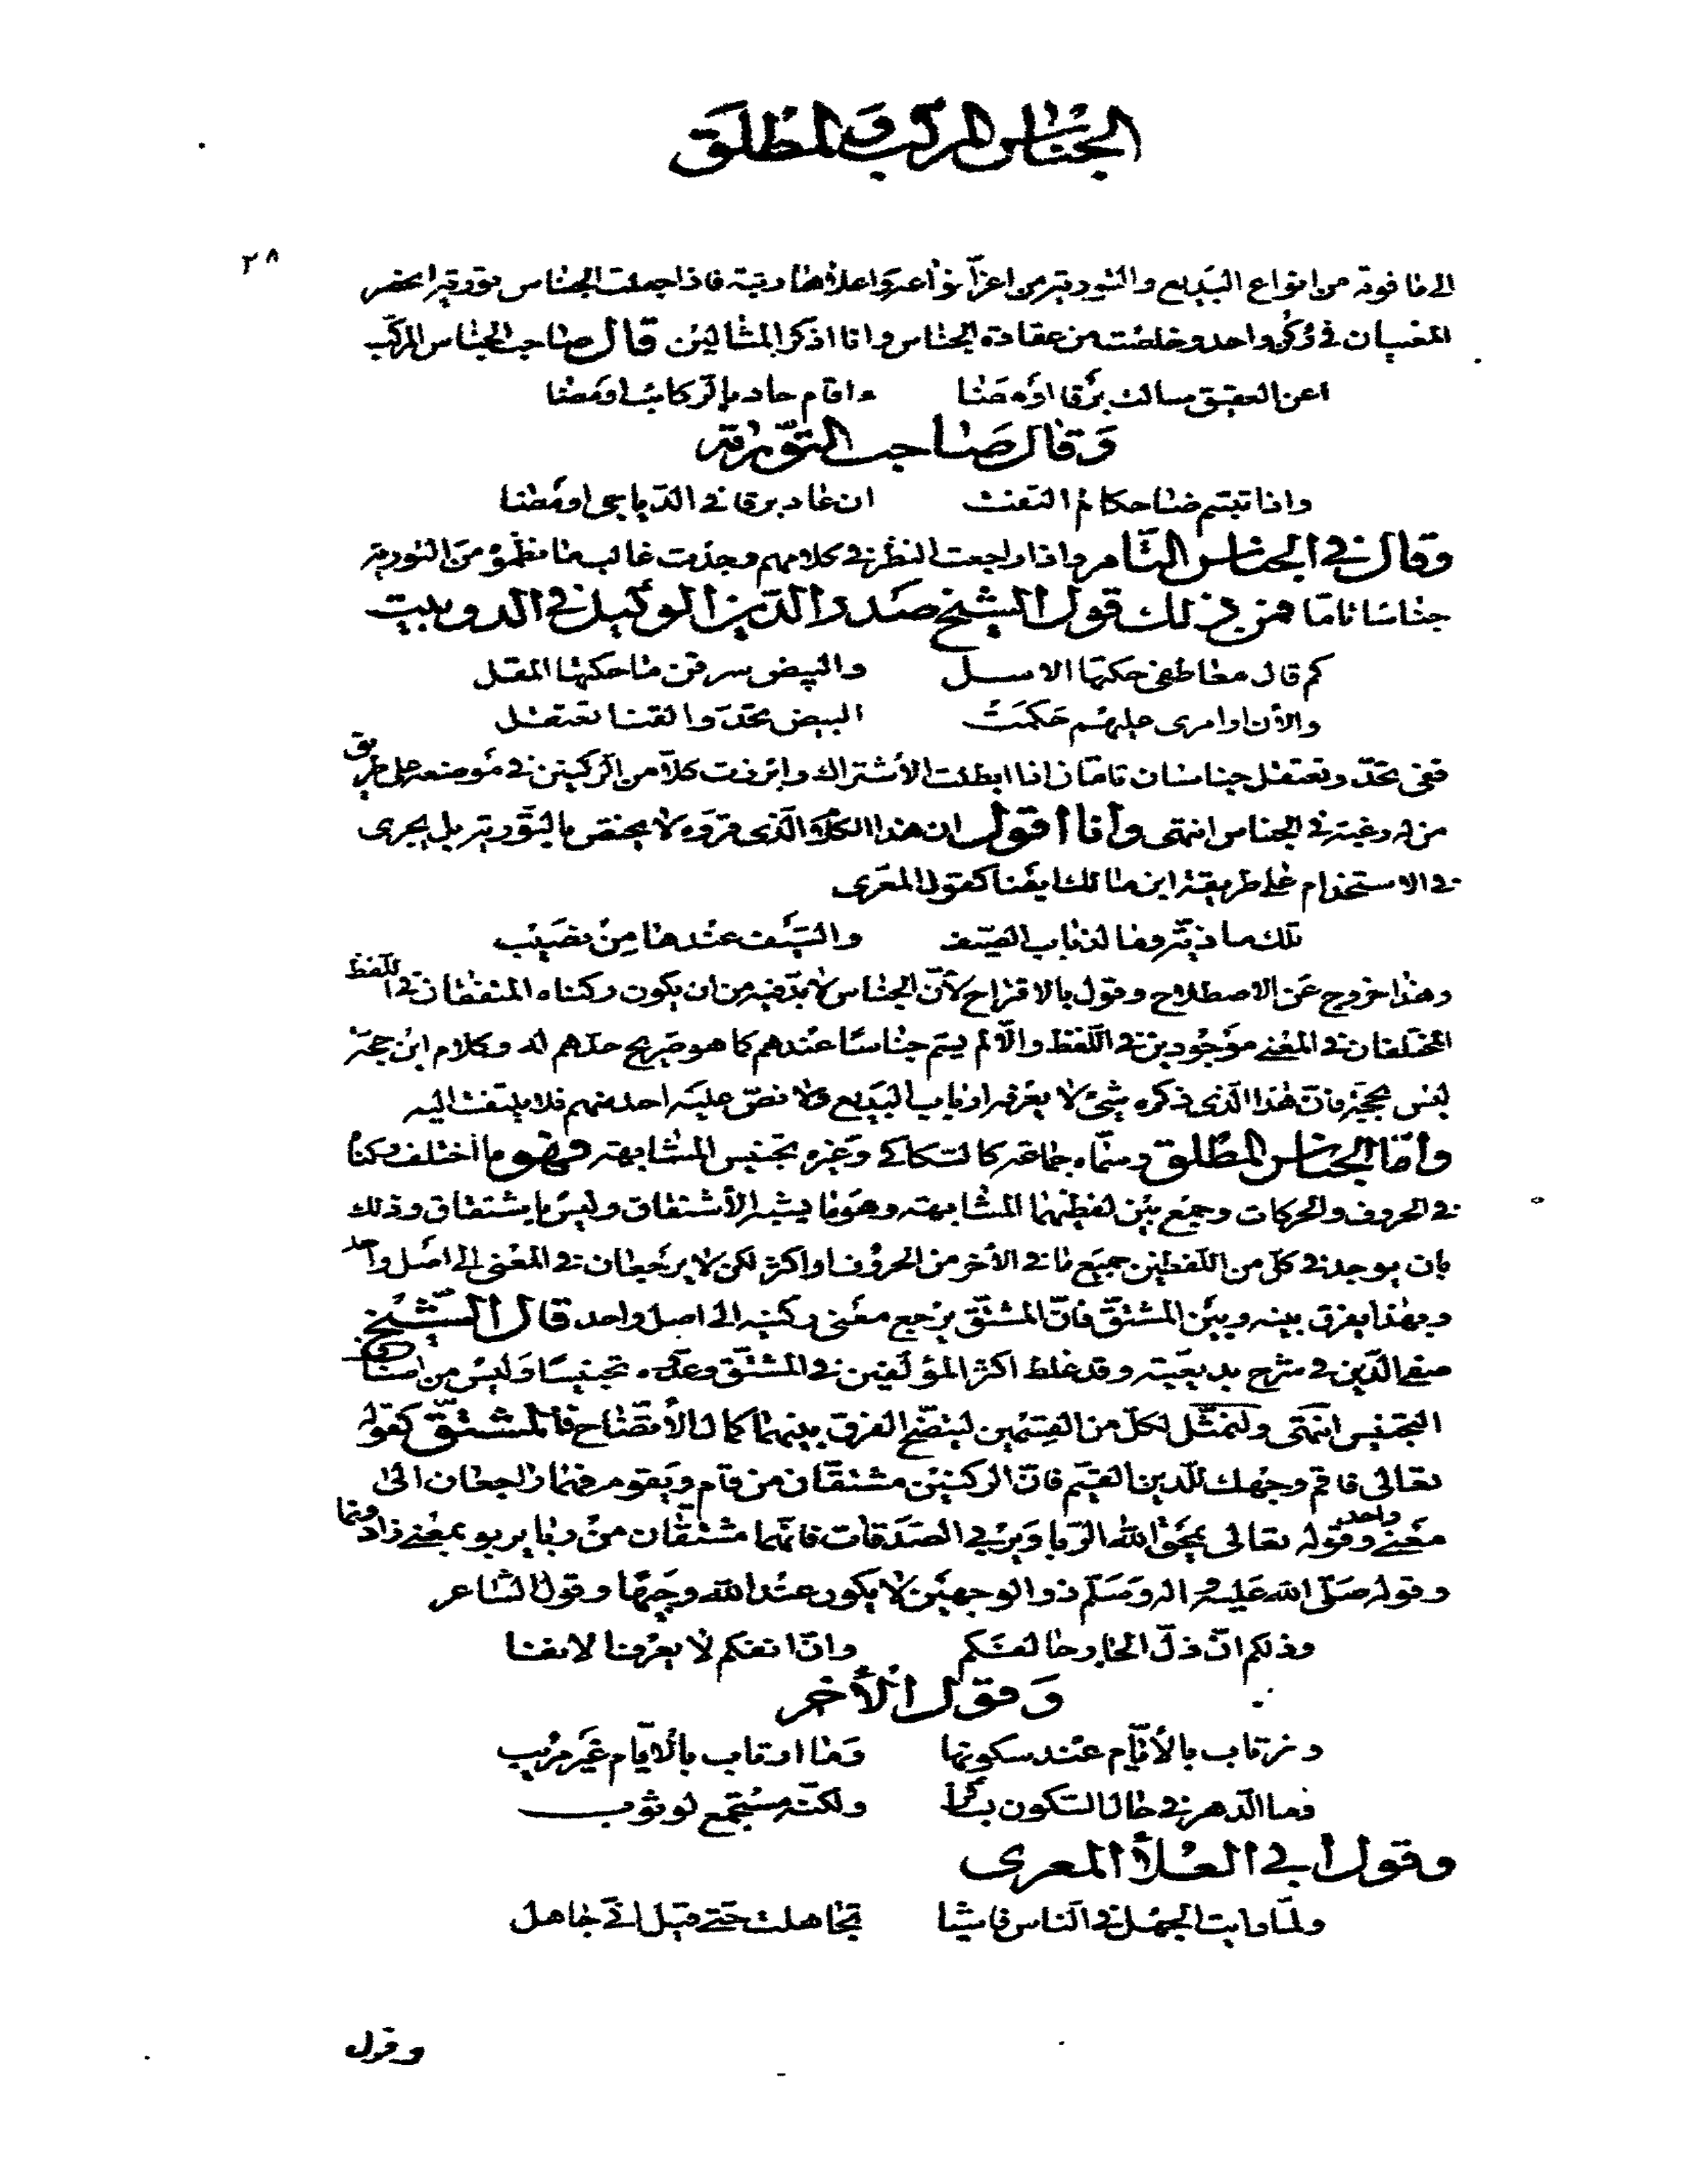 الجناس المركب والمطلق
٢٨
الى ما فوقه من انواع البديع والتورية من اعزّ انواعه واعلاها رتبة فاذا جعلت الجناس تورية انحصر
المعنيان في ركن واحد وخلصت من عقادة الجناس وانا اذكر المثالين قال صاحب الجناس المركّب
اعن العقيق سالت برقا اومضا ءاقام حاد بالركائب اومضا
وقال صاحب التورية
واذا تبسّم ضاحكا لم التفت ان عاد برقا في الدّياجي اومضا
وقال في الجناس التام واذا راجعت النظر في كلامهم وجدت غالب ما نظموه من التورية
جناسا تامّا فمن ذلك قول الشيخ صدر الدّين الوكيل في الدوبيت
كم قال معاطفي حكتها الاسل والبيض سرقن ما حكتها المقل
والأن اوامرى عليهم حكمت البيض تحدّ والقنا تعتقل
ففى تحدّ وتعتقل جناسان تامّان اذا ابطلت الأشتراك وابرزت كلّا من الرّكنين في موضعه على طريق
من له رغبة في الجناس انتهى وأنا أقول ان هذا الكلام الّذى قرّره لا يختصّ بالتّورية بل يجرى
في الاستخدام على طريقة ابن مالك ايضا كقول المعرى
تلك ماذيّة وما لذباب الصّيف والسّيف عندها من نصيب
وهذا خروج عن الاصطلاح وقول بالاقتراح لأنّ الجناس لا بدّ فيه من ان يكون ركناه المتفقان في اللّفظ
المختلفان في المعنى موجودين في اللّفظ والّا لم يتم جناسًا عندهم كما هو صريح حدّهم له وكلام ابن حجّة
ليس بحجّة فانّ هذا الّذى ذكره شئ لا يعرفه ارباب البديع ولا نصّ عليه احد منهم فلا يلتفت اليه
وامّا الجناس المطلق وسمّاه جماعة كالسكاكي وغيره تجنيس المشابهة فهو ما اختلف ركناه
في الحروف والحركات وجمع بين لفظيهما المشابهة وهو ما يشبه الأشتقاق وليس باشتقاق وذلك
بان يوجد في كلّ من اللّفظين جميع ما في الأخر من الحروف او اكثر لكن لا يرجعان في المعنى الى اصل واحد
وبهذا يفرق بينه وبين المشتقّ فانّ المشتقّ يرجع معنى ركنيه الى اصل واحد قال الشيخ
صفي الدّين في شرح بديعيّته وقد غلط اكثر المؤلّفين في المشتقّ وعدّه تجنيسًا وليس من اصناف
التجنيس انتهى ولنمثّل لكلّ من القسمين ليتضح الفرق بينهما كمال الأتضاح فالمشتقّ كقوله
تعالى فاقم وجهك للدّين القيّم فانّ الركنين مشتقّان من قام ويقوم فهما راجعان الى
معنى واحد وقوله تعالى يمحق الله الرّبا ويربي الصّدقات فانّهما مشتقّان من ربا يربو بمعنى زاد ونما
وقوله صلّى الله عليه واله وسلّم ذو الوجهين لا يكون عند الله وجيها وقول الشاعر
وذلكم انّ ذلّ الجار حالفكم وانّ انفكم لا يعرف الانفا
وقول الأخر
وترتاب بالأيّام عند سكونها وما ارتاب بالأيّام غير مريب
فما الدّهر في حال السّكون بساكن ولكنّه مستجمع لوثوب
وقول أبي العلأ المعرى
ولمّا رايت الجهل في النّاس فاشيا تجاهلت حتى قيل انّي جاهل
وقول